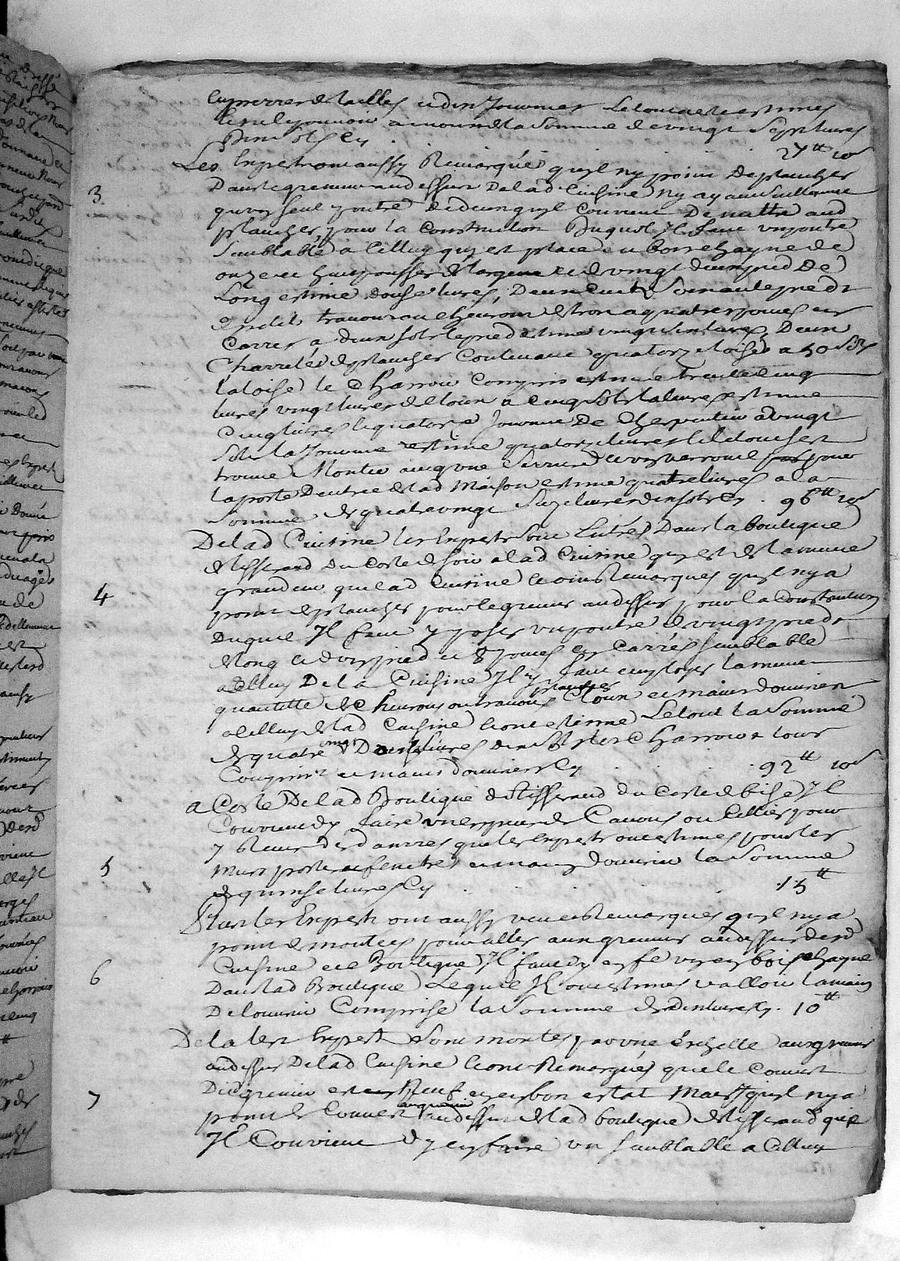 en pierres de tailles et dix Journées Le tout estimés
la somme de vingt sept livres
dix sols Cy 27tt 10s
3 Les Experts ont aussy Remarqués qu'il n'y point de plancher
Dans le grenier au dessus De lad Cuisine N'y ayant
qu'un seul poutre dedans qu'il Convient De mettre aud
plancher pour la Construction Duquel Il faut un poutre
Semblable a Celluy qui est placé en Bois chayne de
onze et huit pousses de largeur et de vingt deux pied De
Long estimé douse livres,
et petit travons ou cheurons de trois a quatre pouces en
Carré a deux sols le pied estimé vingt Deux
Charretés de plancher Contenant quatorze toises a 50 sols
la toise le Charrois Compris estimé trente cinq
livres vingt livres de Cloux a Cinq sols la livre estimé
Cinq livres et quatorze Journée De Charpentier a vingt
sols la Journée estimé quatorze livres
Montée aus une Serrure avec verrouil pour
la porte D'entrée de lad Maison estimé quatre livres a la
Somme de quatre vingt Seize livres dix sols Cy . 96tt 10s
De lad Cuisine les Experts sont Entrés Dans la Boutique
de tisserand du Costé de soir a lad Cuisine qui est de la meme
grandeur que lad Cuisine Remarqués qu'il n'y a
4 point de plancher pour le grenier au dessus pour la Construction
Duquel Il faut y poser un poutre de vingt pied de
Long et dix pied et 8 pouces en Carrés semblable
a Celluy De la Cuisine Il y faut employer la meme
quantité de Cheurons ou travons planches Cloux et main d'ouvrier
a Celluy de lad Cuisine Le tout la Somme
de quatre vingt Douse livres dix sols Charrois et Cloux
Compris et main d'ouvrier Cy . . 92tt 10s
a Costé De lad Boutique de Tisserand du Costé de bise Il
Convient d'y faire une espece de Cavons ou Cellier pour
y les Experts ont estimés pour les
5 murs porte et fenetre et main d'ouvrier la Somme
de quinse livres Cy . . . 15tt
Plus les Experts ont aussy veu et Remarqués qu'il n'y a
point de montées pour aller aux greniers au dessus desd
6 Cuisine et Boutique Il faut en faire un en bois chayne
Dans lad Boutique Lequel Ils ont estimés valloir la main
De l'ouvrier Comprise la Somme de dix livres Cy . 10tt
De la les Experts Sont montés par une Eschelle aux greniers
au dessus De lad Cuisine et ont Remarqués que le Couvert
7 Dud grenier est en Neuf et en bon estat Mais qu'il n'y a
point de Couvert au grenier au dessus de lad boutique de tisserand que
Il Convient d'y en faire un semblable a Celluy